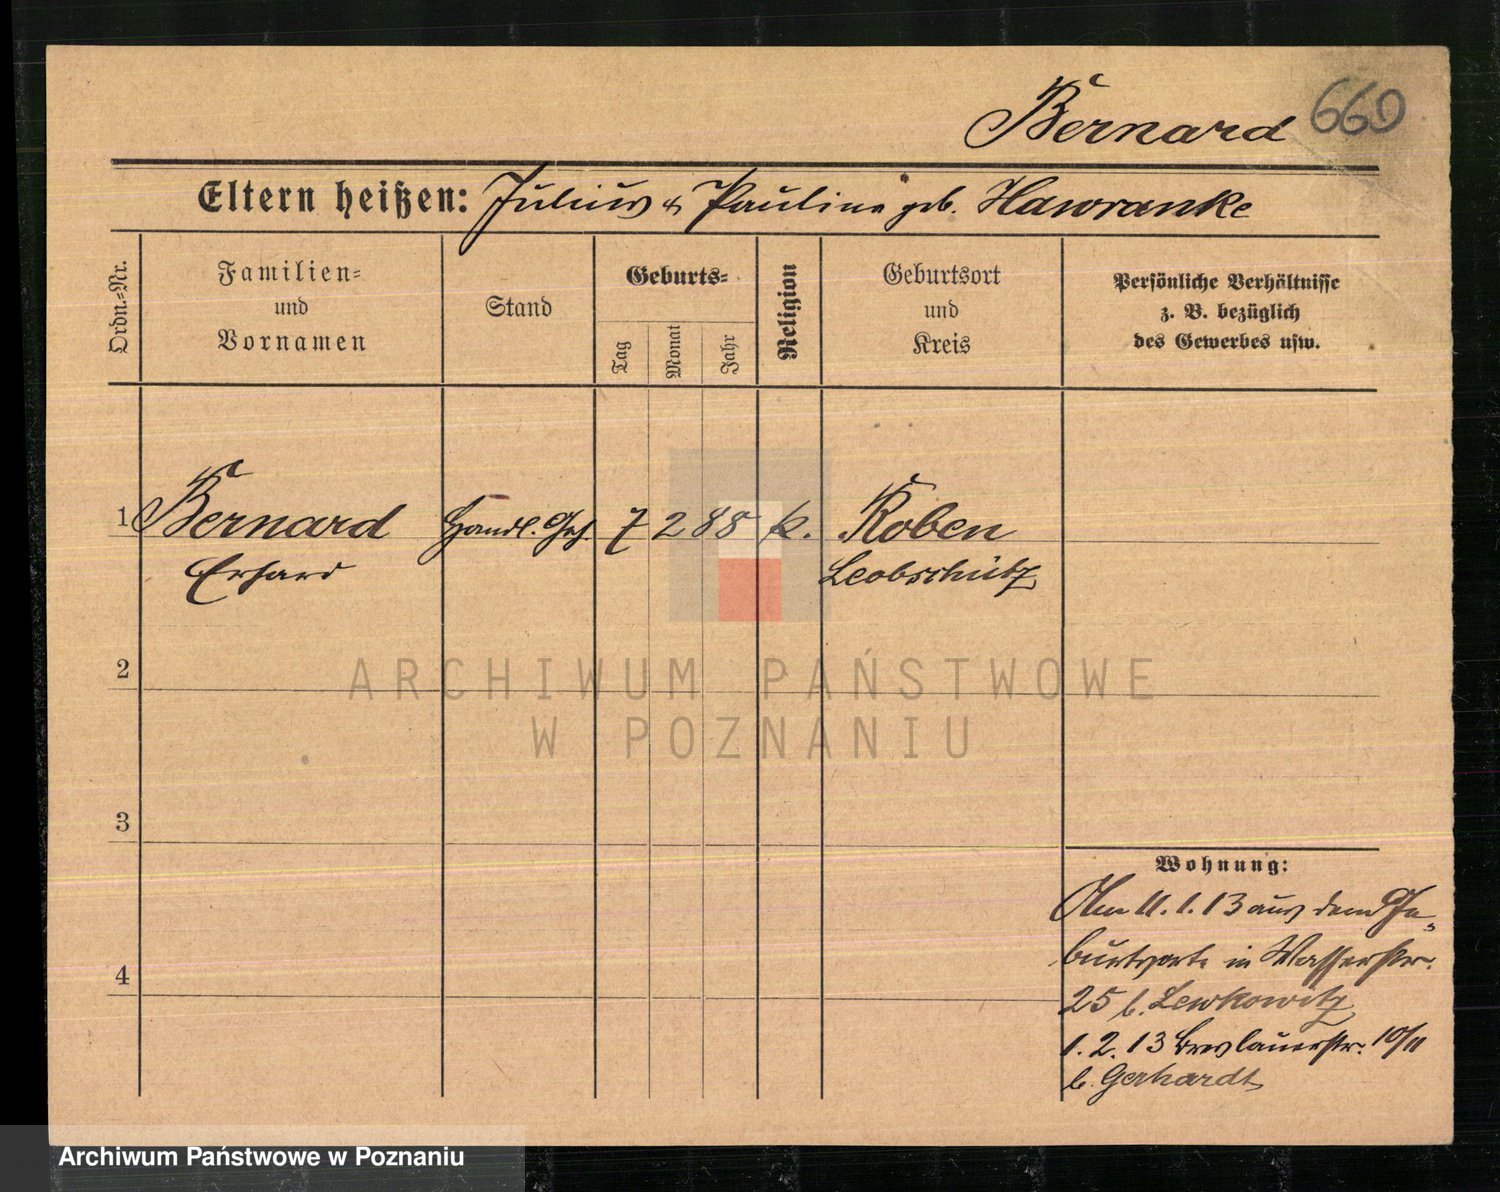 Bernard 660
Eltern heißen: Julius & Pauline geb. Hawranke
Ordn.=Nr.
Familien=
und
Vornamen
Stand
Geburts=
Tag
Monat
Jahr
Religion
Geburtsort
und
Kreis
Persönliche Verhältnisse
z. B. bezüglich
des Gewerbes usw.
1 Bernard Handl. Geh. 7 2 88 k. Roben
Erhard Leobschütz
2
3
4
Wohnung:
Am 11.1.13 aus dem Ge-
burtsorte in Wasserstr.
25 b. Lewkowitz
1.2.13 Breslauerstr. 10/11
b. Gerhardt
ARCHIWUM PAŃSTWOWE
W POZNANIU
Archiwum Państwowe w Poznaniu